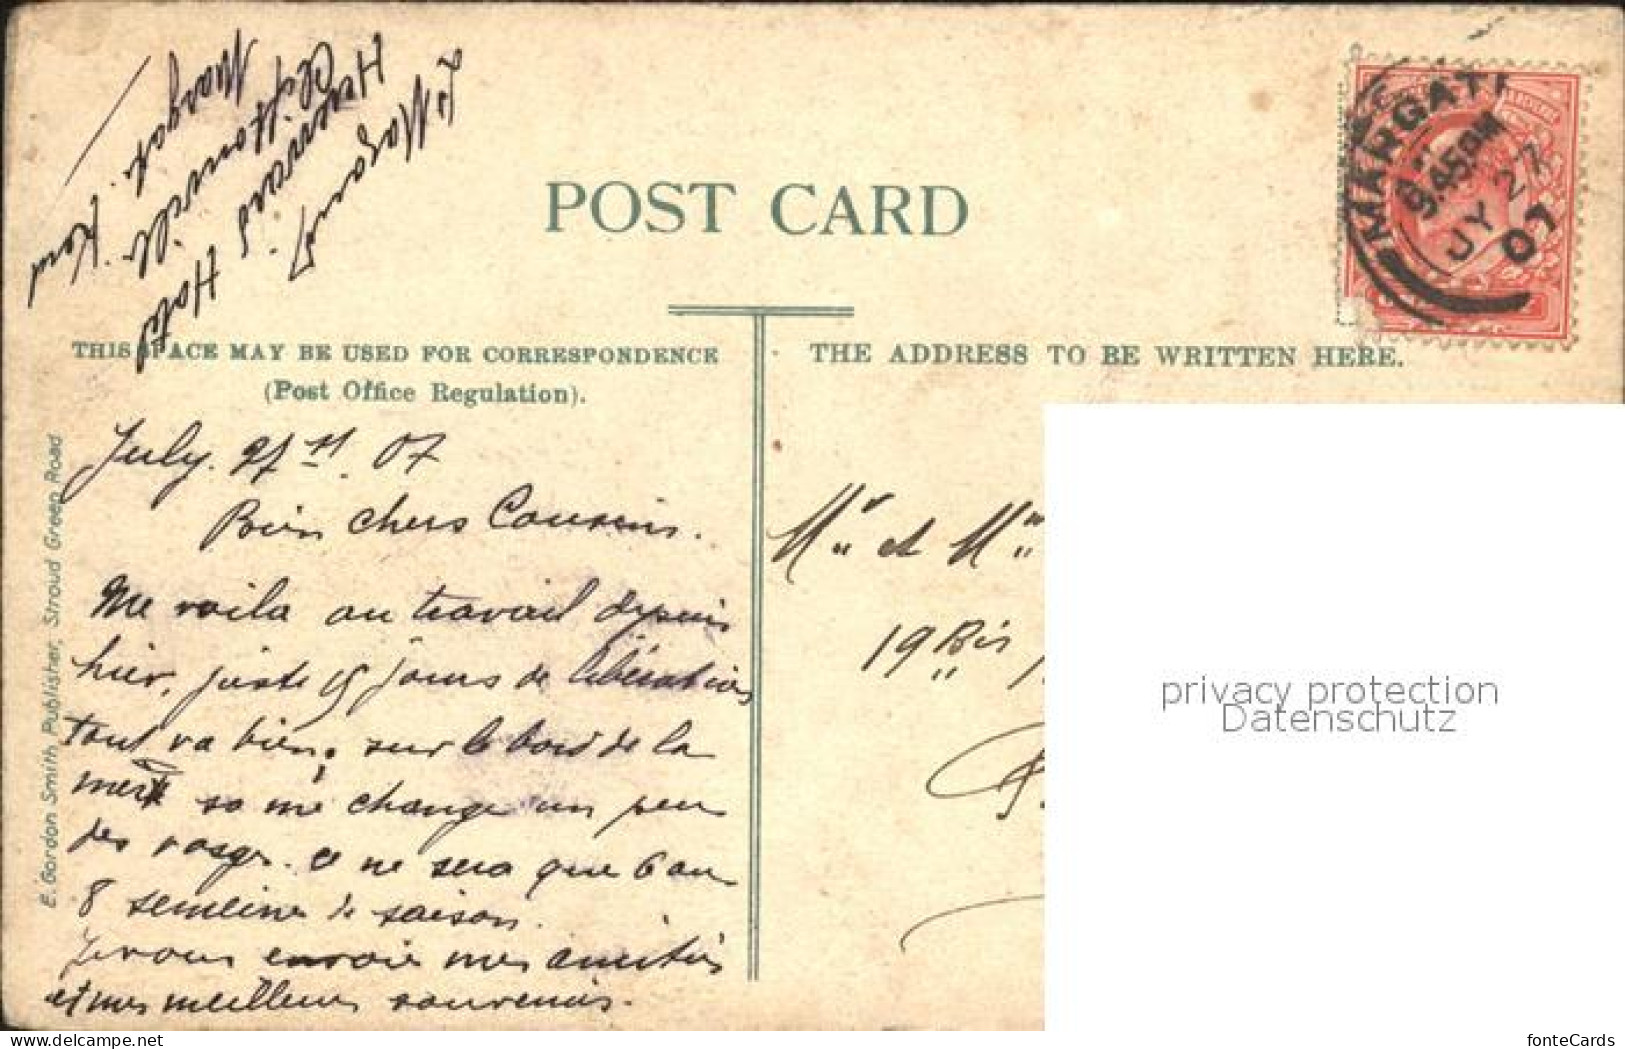 Hotel
Cliftonville
Margate
Kent
POST CARD
MARGATE
9.45 PM
JY 27
07
THIS SPACE MAY BE USED FOR CORRESPONDENCE
(Post Office Regulation).
THE ADDRESS TO BE WRITTEN HERE.
E. Gordon Smith Publisher, Stroud Green Road
July. 27 07
Bien chers Cousins.
Me voila au travail depuis
hier, juste 15 jours de libération
tout va bien, sur le bord de la
mer sa me change un peu
des ce ne sera que 6 ou
8 semeine de saison.
Je vous envoie mes amitiés
et mes meilleurs souvenirs.
Mr et Mme
19 Bis
privacy protection
Datenschutz
www.delcampe.net
fonteCards